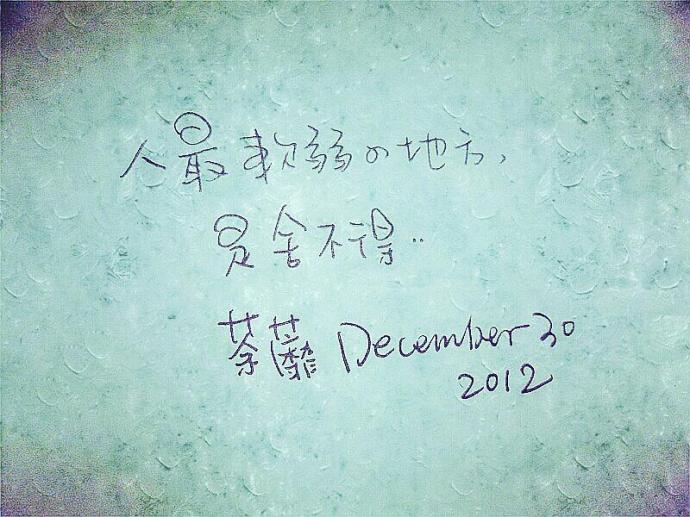 人最軟弱の地方,
是舍不得..
荼蘼 December 30
2012